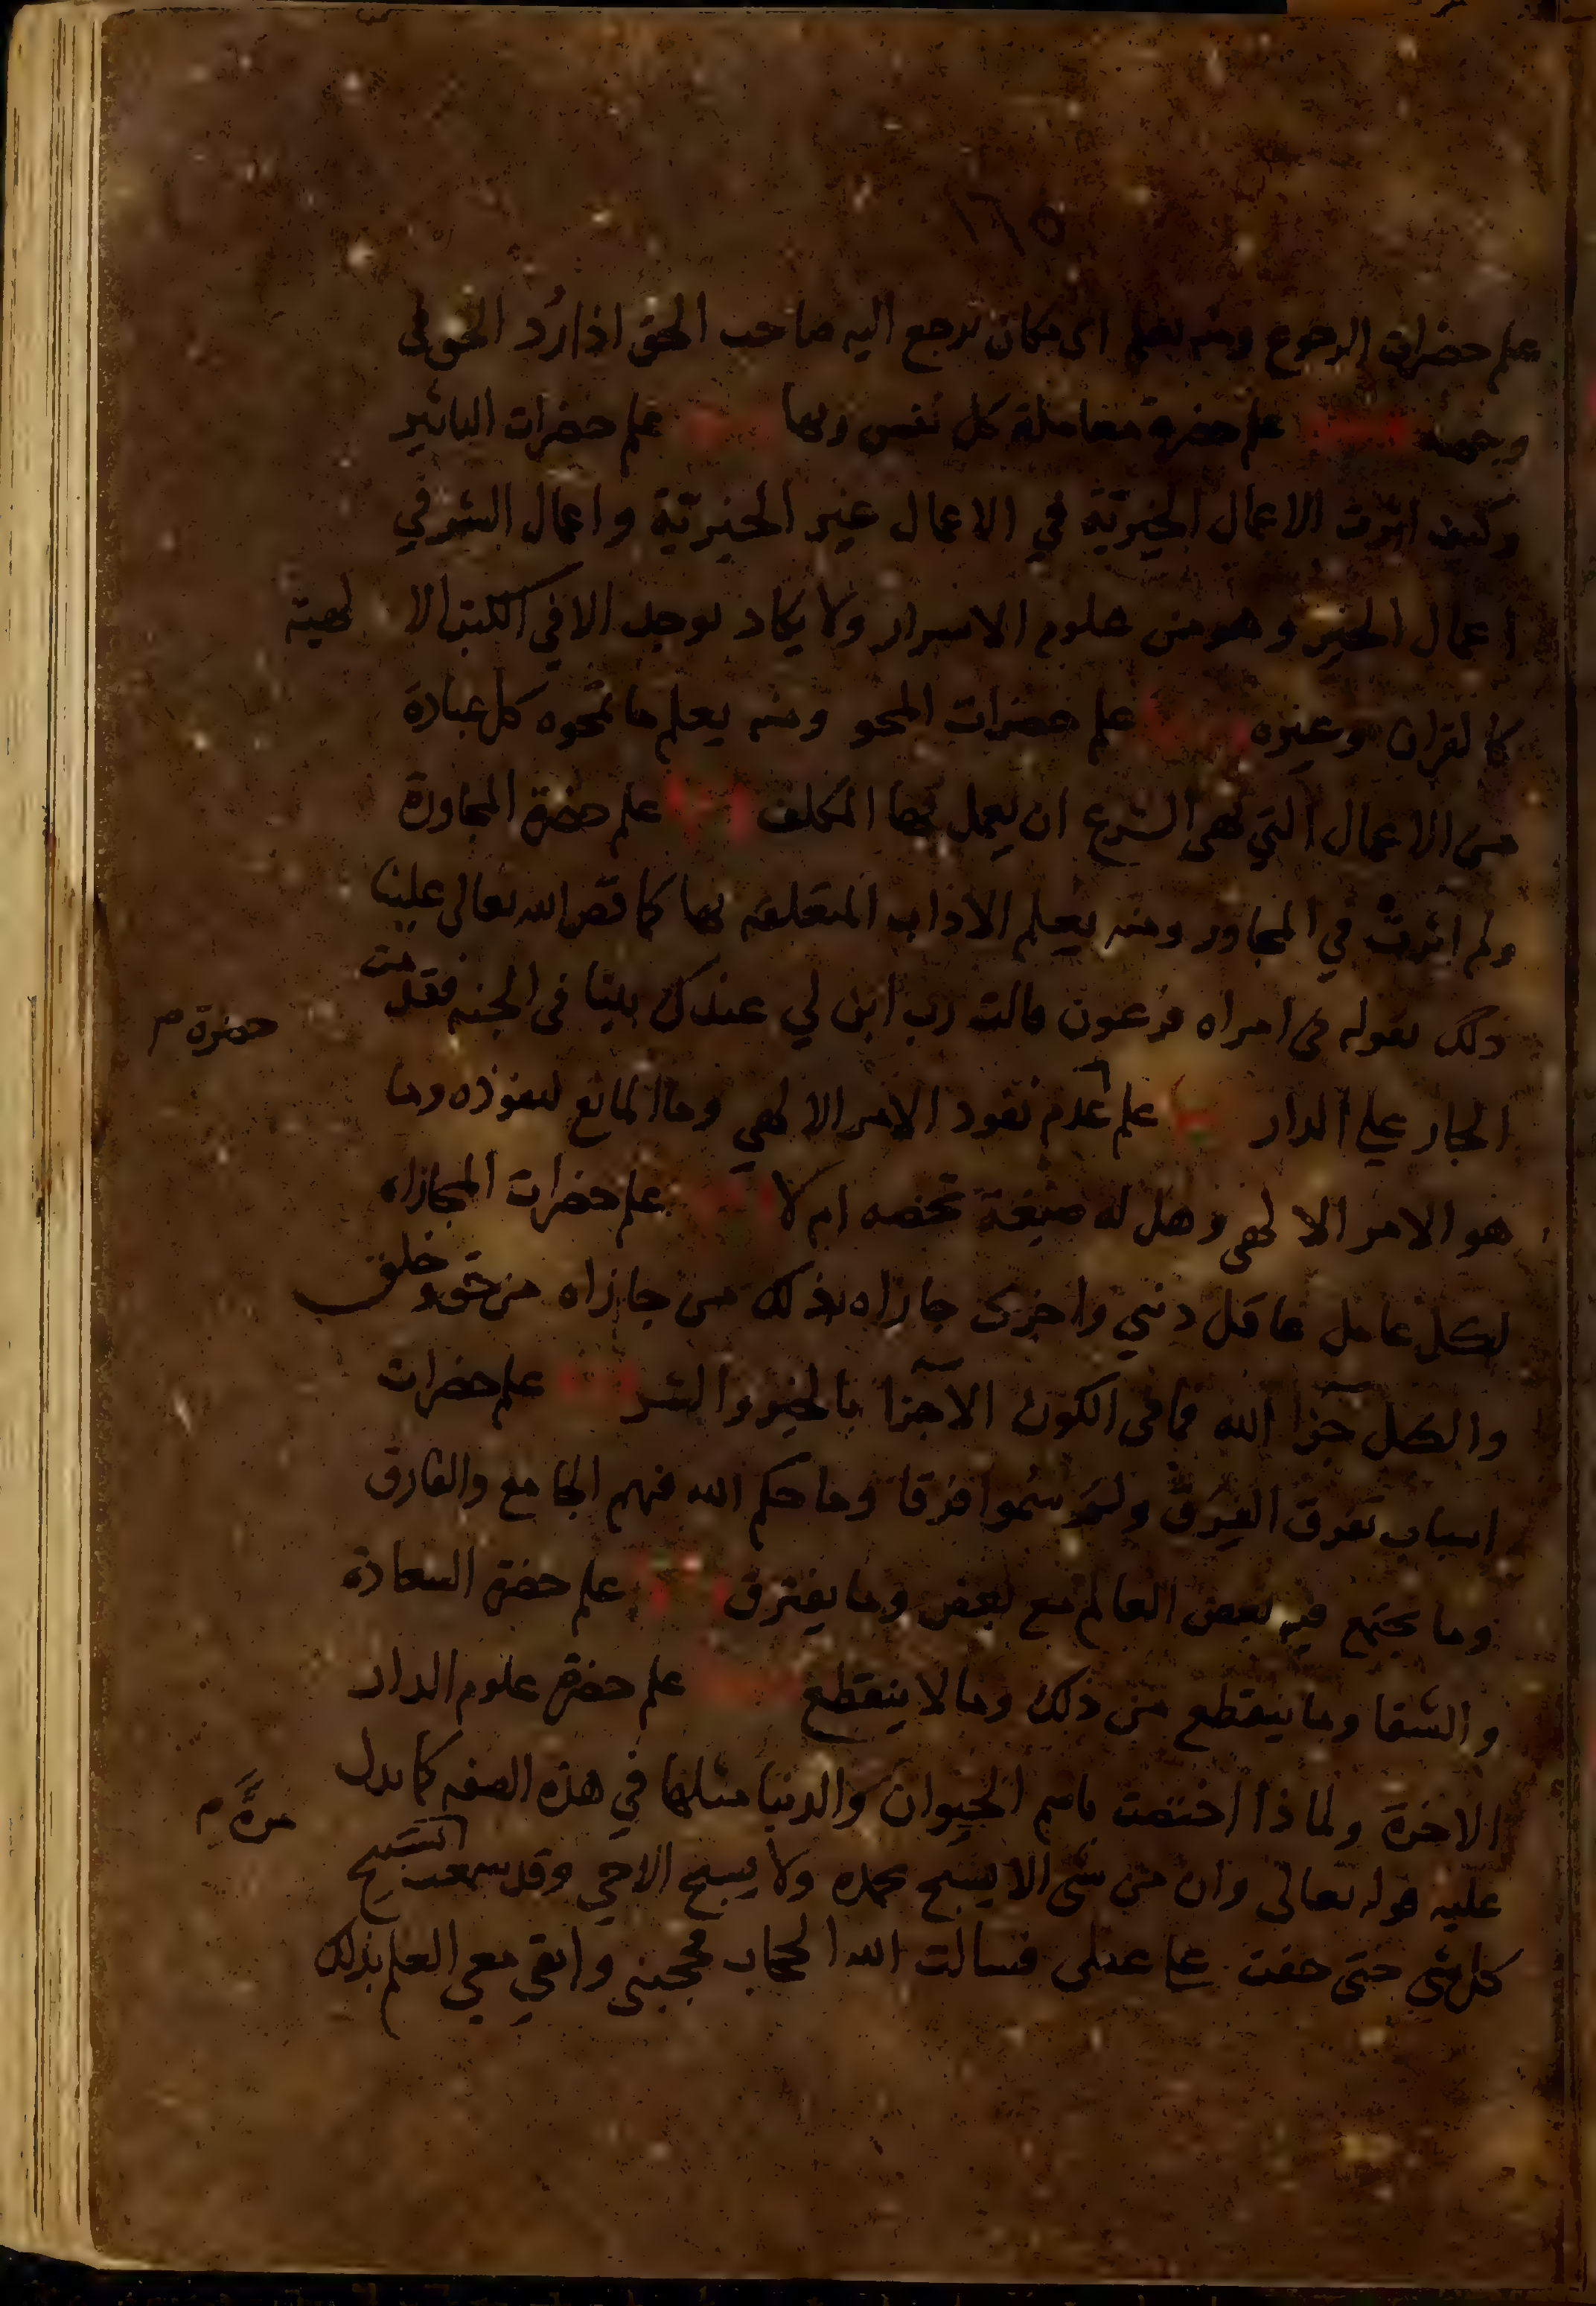 ١٦٥
علم حضرات الرجوع ومنه يعلم اى مكان يرجع اليه صاحب الحق اذا رُد الحق في
وجهه علم حضرة معاملة كل نفس ربها علم حضرات التاثير
وكيف اثرت الاعمال الخيريّة في الاعمال غير الخيريّة واعمال الشر في
اعمال الخير وهو من علوم الاسرار ولا يكاد يوجد الا في الكتب الا لهية
كالقران وغيره علم حضرات المحو ومنه يعلم ما تمحوه كل عبادة
من الاعمال التي نهى الشرع ان يعمل بها المكلف ومنها علم حضرة المجاورة
ولم اثرت في المجاور ومنه يعلم الاداب المتعلقة بها كما قص الله تعالى علينا
ذلك بقوله في امراه فرعون قالت رب ابن لي عندك بيتا فى الجنه فقدمت
الجار على الدار علم عدم نفوذ الامر الالهي وما المانع لنفوذه وما
حضرة م
هو الامر الالهي وهل له صيغة تخصه ام لا علم حضرات المجازاه
لكل عامل عاقل دنيى واخرى جازاه بذلك من جازاه من حق وخلق
والكل جزآ الله فما فى الكون الا جزآ بالخير والشر علم حضرات
اسباب تفرق الفِرَق ولم سُموا فرقا وما حكم الله فيهم الجامع والفارق
وما يجتمع فيه بعض العالم مع بعض وما يفترق علم حضرة السعادة
والشقا وما ينقطع من ذلك وما لا ينقطع علم حضرة علوم الدار
الاخرة ولماذا اختصت باسم الحيوان والدنيا مثلها في هذه الصفه كما يدل
عليه قوله تعالى وان من شى الا يسبح بحمده ولا يسبح الا حي وقد سمعت التسبيح
مرةً م
كل شي حتى خفت على عقلى فسالت الله الحجاب فحجبنى وابقي معي العلم بذلك